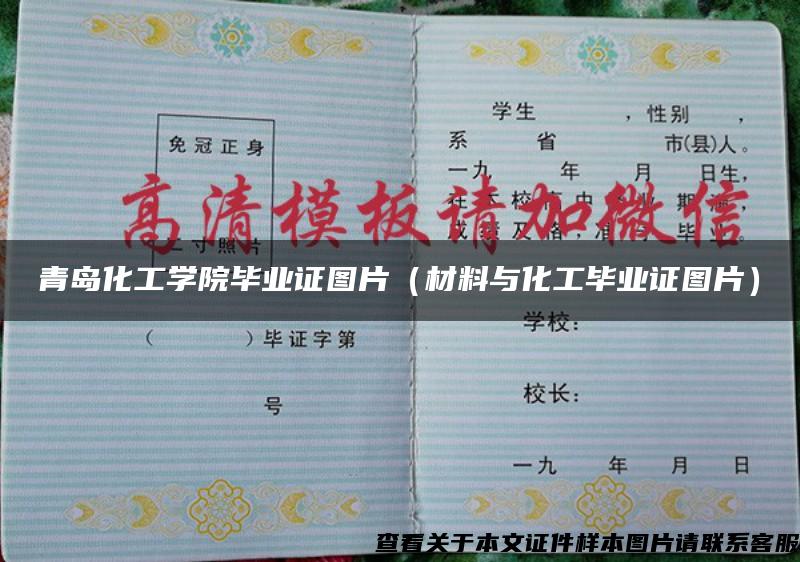 免冠正身
二寸照片
（　　　）毕证字第
号
学生　　　，性别　，
系　　省　　　市(县)人。
一九　　年　　月　　日生，
成绩及格，准予毕业。
高清模板请加微信
青岛化工学院毕业证图片（材料与化工毕业证图片）
学校：
校长：
一九　　年　　月　　日
查看关于本文证件样本图片请联系客服